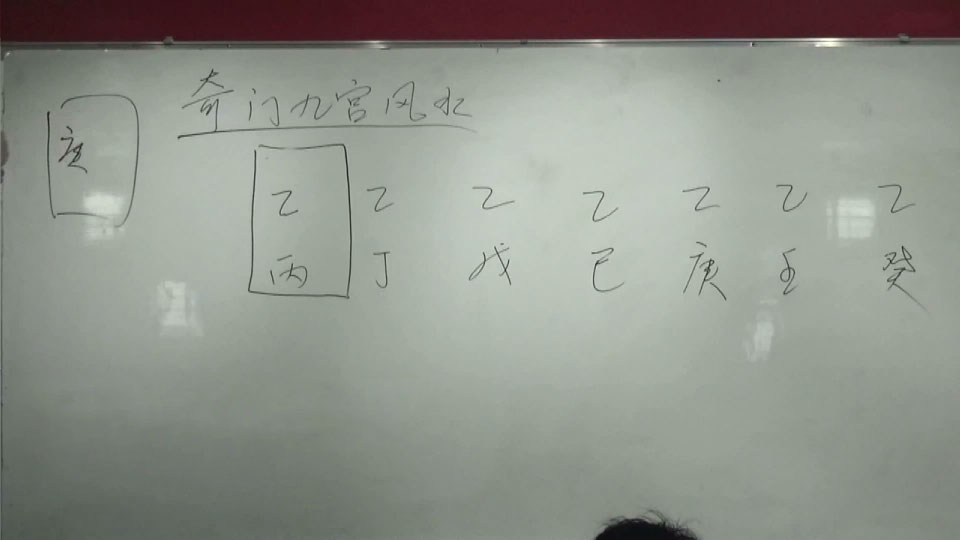 奇门九宫风水
庚
乙 乙 乙 乙 乙 乙 乙
丙 丁 戊 己 庚 壬 癸